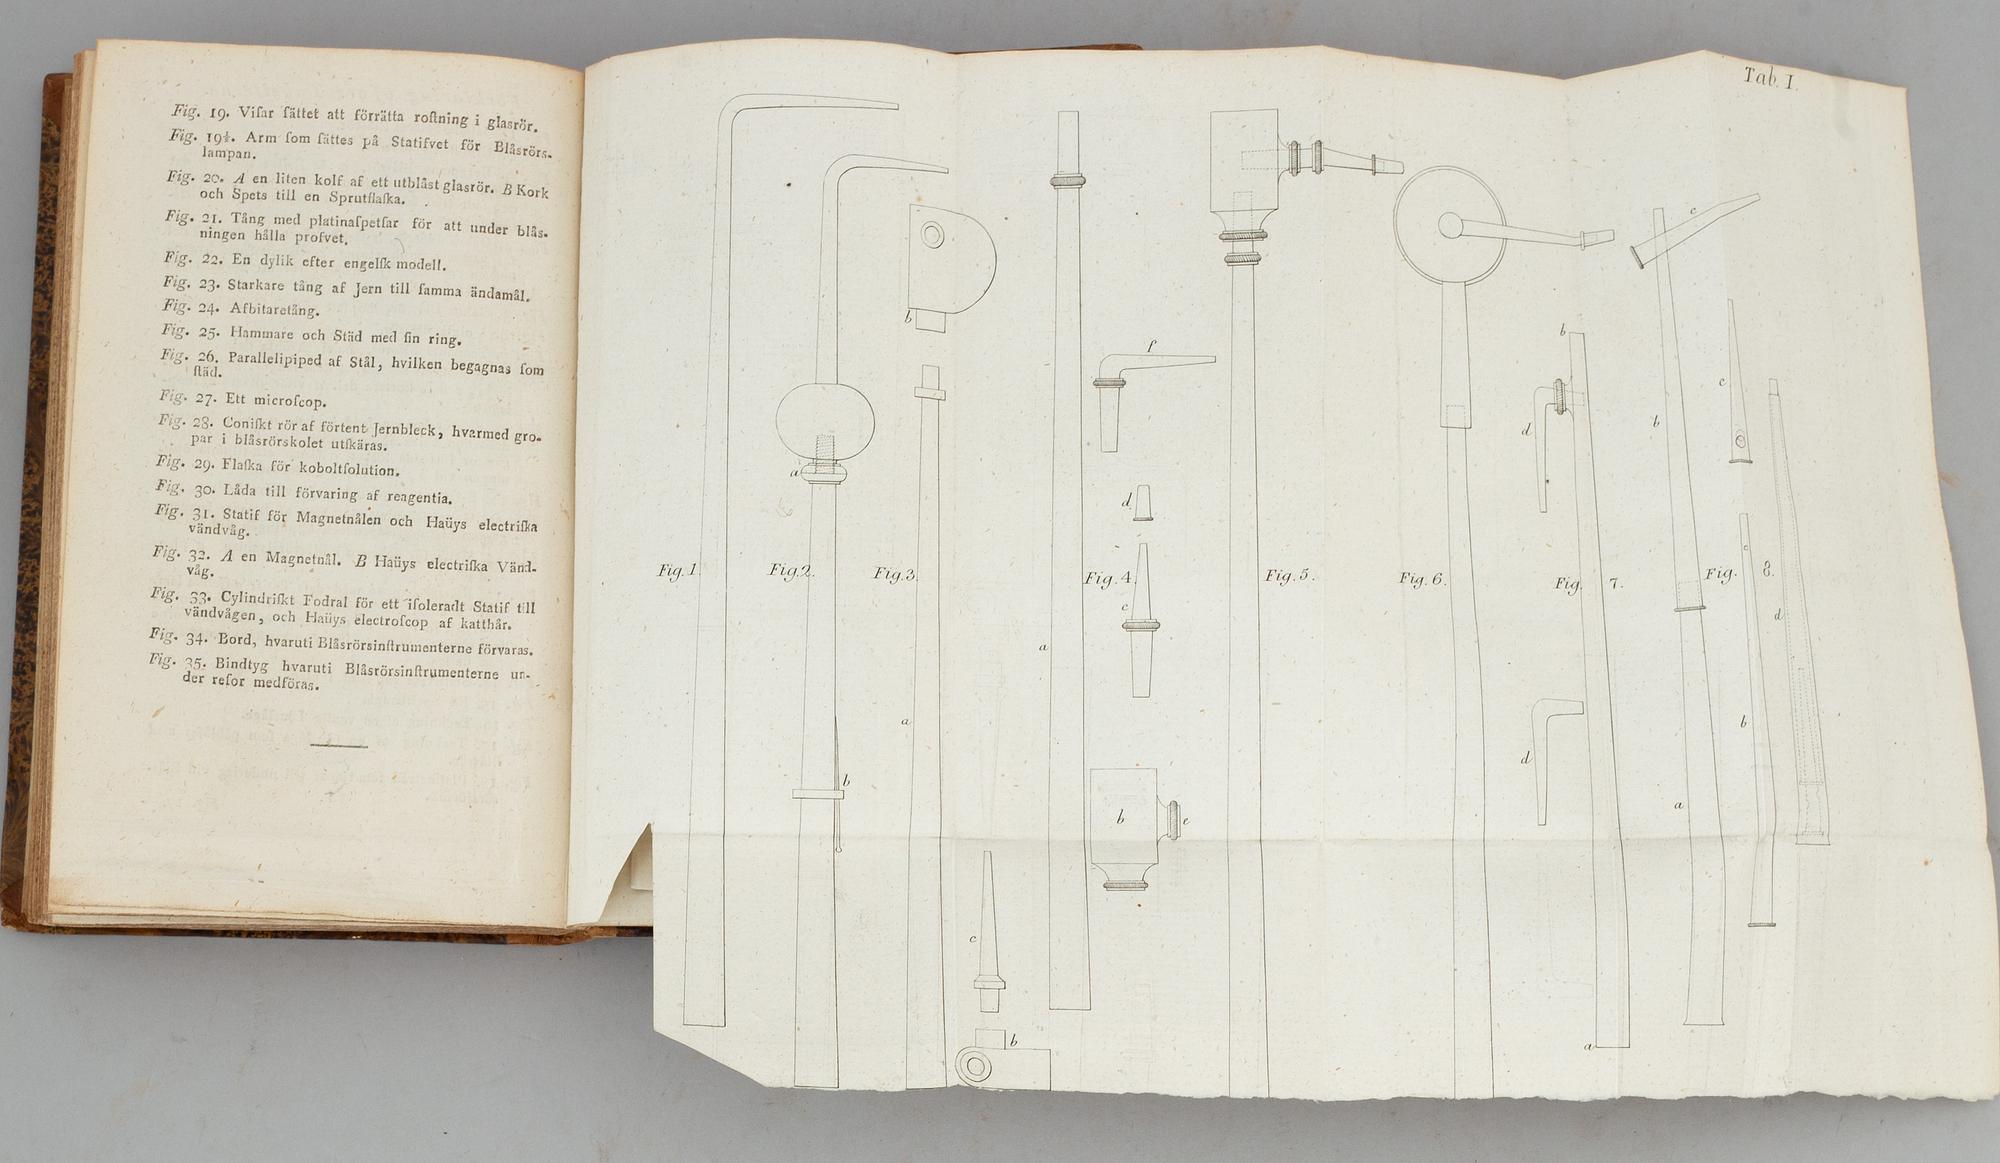 Fig. 19. Viſar ſättet att förrätta roſtning i glasrör.
Fig. 19½. Arm ſom ſättes på Statifvet för Blåsrörs-
lampan.
Fig. 20. A en liten kolf af ett utblåst glasrör. B Kork
och Spets till en Sprutflaſka.
Fig. 21. Tång med platinaſpetſar för att under blås-
ningen hålla profvet.
Fig. 22. En dylik efter engelſk modell.
Fig. 23. Starkare tång af Jern till ſamma ändamål.
Fig. 24. Afbitaretång.
Fig. 25. Hammare och Städ med ſin ring.
Fig. 26. Parallelipiped af Stål, hvilken begagnas ſom
ſtäd.
Fig. 27. Ett microſcop.
Fig. 28. Coniſkt rör af förtent Jernbleck, hvarmed gro-
par i blåsrörskolet utſkäras.
Fig. 29. Flaſka för koboltſolution.
Fig. 30. Låda till förvaring af reagentia.
Fig. 31. Statif för Magnetnålen och Haüys electriſka
vändvåg.
Fig. 32. A en Magnetnål. B Haüys electriſka Vänd-
våg.
Fig. 33. Cylindriſkt Fodral för ett iſoleradt Statif till
vändvågen, och Haüys electroſcop af katthår.
Fig. 34. Bord, hvaruti Blåsrörsinſtrumenterne förvaras.
Fig. 35. Bindtyg hvaruti Blåsrörsinſtrumenterne un-
der reſor medföras.
Tab. I.
Fig. 1.
a
b
Fig. 2.
b
a
Fig. 3.
c
b
a
f
d
Fig. 4.
c
b
e
Fig. 5.
Fig. 6.
b
d
Fig. 7.
d
a
c
b
a
Fig. 8.
c
c
b
d